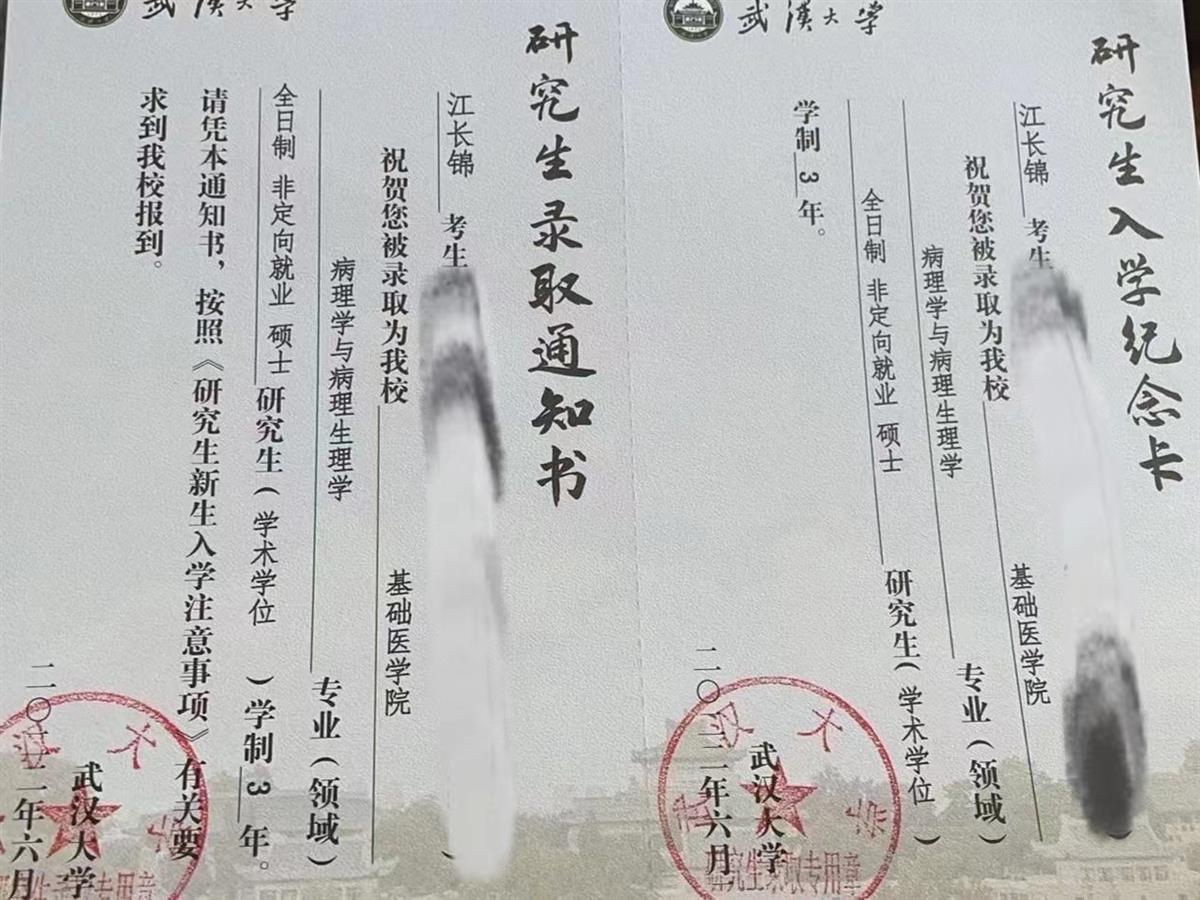 武汉大学
研究生录取通知书
江长锦 考生
祝贺您被录取为我校 基础医学院
病理学与病理生理学 专业(领域)
全日制 非定向就业 硕士 研究生(学术学位 )学制 3 年。
请凭本通知书，按照《研究生新生入学注意事项》有关要
求到我校报到。
武汉大学
二〇二二年六月
武汉大学
研究生入学纪念卡
江长锦 考生
祝贺您被录取为我校 基础医学院
病理学与病理生理学 专业(领域)
全日制 非定向就业 硕士 研究生(学术学位 )
学制 3 年。
武汉大学
二〇二二年六月
武汉大学
研究生录取专用章